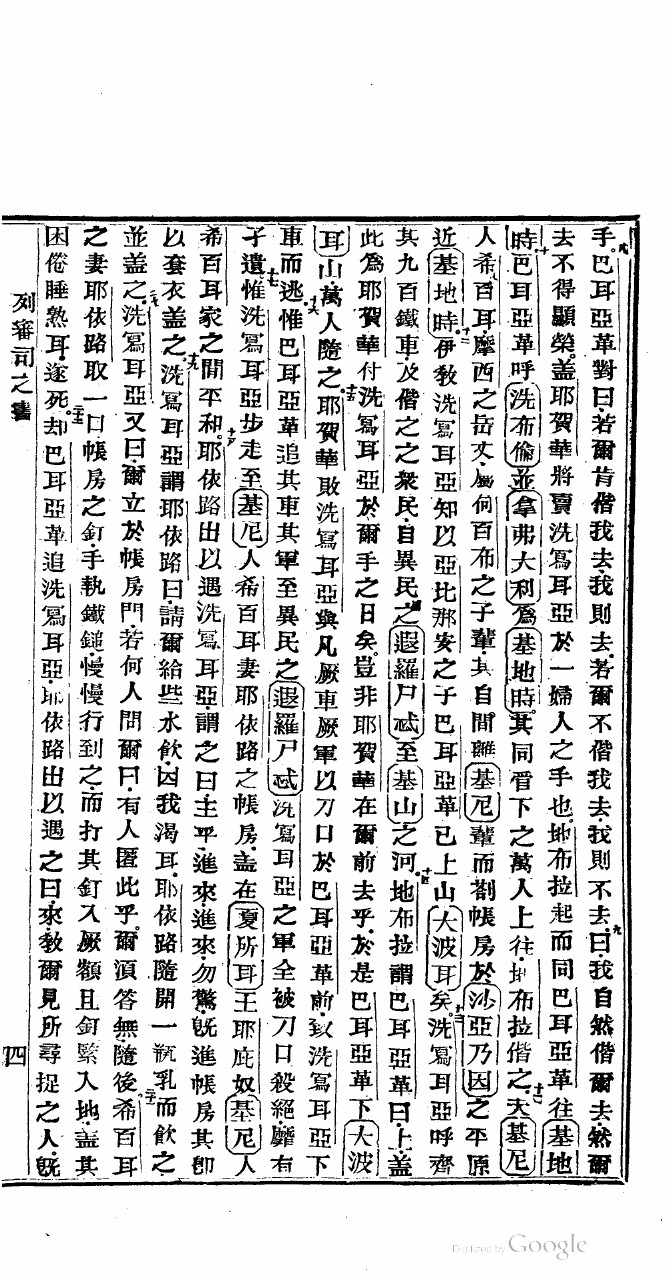 手巴耳亞革對曰若爾肯偕我去我則去若爾不偕我去我則不去曰我自然偕爾去然爾
去不得顯榮蓋耶賀華將賣洗寫耳亞於一婦人之手也地布拉起而同巴耳亞革往基地
時巴耳亞革呼洗布倫並拿弗大利爲基地時其同胥下之萬人上往地布拉偕之夫基尼
人希百耳摩西之岳丈屬何百布之子輩其自間離基尼輩而劄帳房於沙亞乃因之平原
近基地時伊教洗寫耳亞知以亞比那安之子巴耳亞革已上山大波耳矣洗寫耳亞呼齊
其九百鐵車及偕之之衆民自異民之遐羅尸忒至基山之河地布拉謂巴耳亞革曰上蓋
此爲耶賀華付洗寫耳亞於爾手之日矣豈非耶賀華在爾前去乎於是巴耳亞革下大波
耳山萬人隨之耶賀華敗洗寫耳亞與凡厥車厥軍以刀口於巴耳亞革前致洗寫耳亞下
車而逃惟巴耳亞革追其車其軍至異民之遐羅尸忒洗寫耳亞之軍全被刀口殺絕靡有
孑遺惟洗寫耳亞步走至基尼人希百耳妻耶依路之帳房蓋在夏所耳王耶庇奴基尼人
希百耳家之間平和耶依路出以遇洗寫耳亞謂之曰主乎進來進來勿驚既進帳房其卽
以套衣蓋之洗寫耳亞謂耶依路曰請爾給些水飲因我渴耳耶依路隨開一瓶乳而飲之
並蓋之洗寫耳亞又曰爾立於帳房門若何人問爾曰有人匿此乎爾須答無隨後希百耳
之妻耶依路取一口帳房之釘手執鐵鎚慢慢行到之而打其釘入厥額且釘緊入地蓋其
困倦睡熟耳遂死却巴耳亞革追洗寫耳亞耶依路出以遇之曰來教爾見所尋捉之人既
列審司之書
四
Digitized by Google